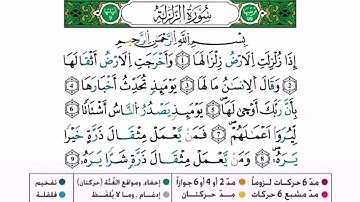 سُورَةُ الزَّلْزَلَةِ
بِسْمِ اللَّهِ الرَّحْمَٰنِ الرَّحِيمِ
إِذَا زُلْزِلَتِ الْأَرْضُ زِلْزَالَهَا ۝١ وَأَخْرَجَتِ الْأَرْضُ أَثْقَالَهَا
۝٢ وَقَالَ الْإِنسَٰنُ مَا لَهَا ۝٣ يَوْمَئِذٍ تُحَدِّثُ أَخْبَارَهَا ۝٤
بِأَنَّ رَبَّكَ أَوْحَىٰ لَهَا ۝٥ يَوْمَئِذٍ يَصْدُرُ النَّاسُ أَشْتَاتًا
لِّيُرَوْا أَعْمَٰلَهُمْ ۝٦ فَمَن يَعْمَلْ مِثْقَالَ ذَرَّةٍ خَيْرًا
يَرَهُۥ ۝٧ وَمَن يَعْمَلْ مِثْقَالَ ذَرَّةٍ شَرًّا يَرَهُۥ ۝٨
مدّ 6 حركات لزوماً مدّ 2 أو 4 أو 6 جوازاً إخفاء، ومواقع الغُنَّة (حركتان) تفخيم
مدّ مشبع 6 حركات مدّ حركتان إدغام، وما لا يُلفَظ قلقلة